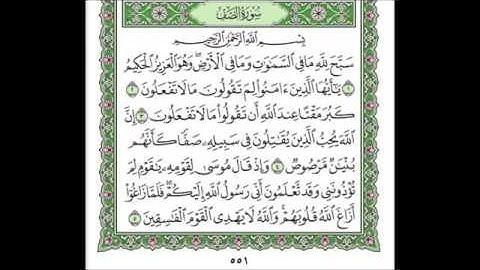 سُورَةُ الصَّفِّ
بِسْمِ اللَّهِ الرَّحْمَٰنِ الرَّحِيمِ
سَبَّحَ لِلَّهِ مَا فِي السَّمَٰوَٰتِ وَمَا فِي الْأَرْضِ وَهُوَ الْعَزِيزُ الْحَكِيمُ
١ يَٰٓأَيُّهَا الَّذِينَ ءَامَنُوا لِمَ تَقُولُونَ مَا لَا تَفْعَلُونَ ٢
كَبُرَ مَقْتًا عِندَ اللَّهِ أَن تَقُولُوا مَا لَا تَفْعَلُونَ ٣ إِنَّ
اللَّهَ يُحِبُّ الَّذِينَ يُقَٰتِلُونَ فِي سَبِيلِهِ صَفًّا كَأَنَّهُم
بُنْيَٰنٌ مَّرْصُوصٌ ٤ وَإِذْ قَالَ مُوسَىٰ لِقَوْمِهِ يَٰقَوْمِ لِمَ
تُؤْذُونَنِي وَقَد تَّعْلَمُونَ أَنِّي رَسُولُ اللَّهِ إِلَيْكُمْ فَلَمَّا زَاغُوا
أَزَاغَ اللَّهُ قُلُوبَهُمْ وَاللَّهُ لَا يَهْدِي الْقَوْمَ الْفَٰسِقِينَ ٥
٥٥١